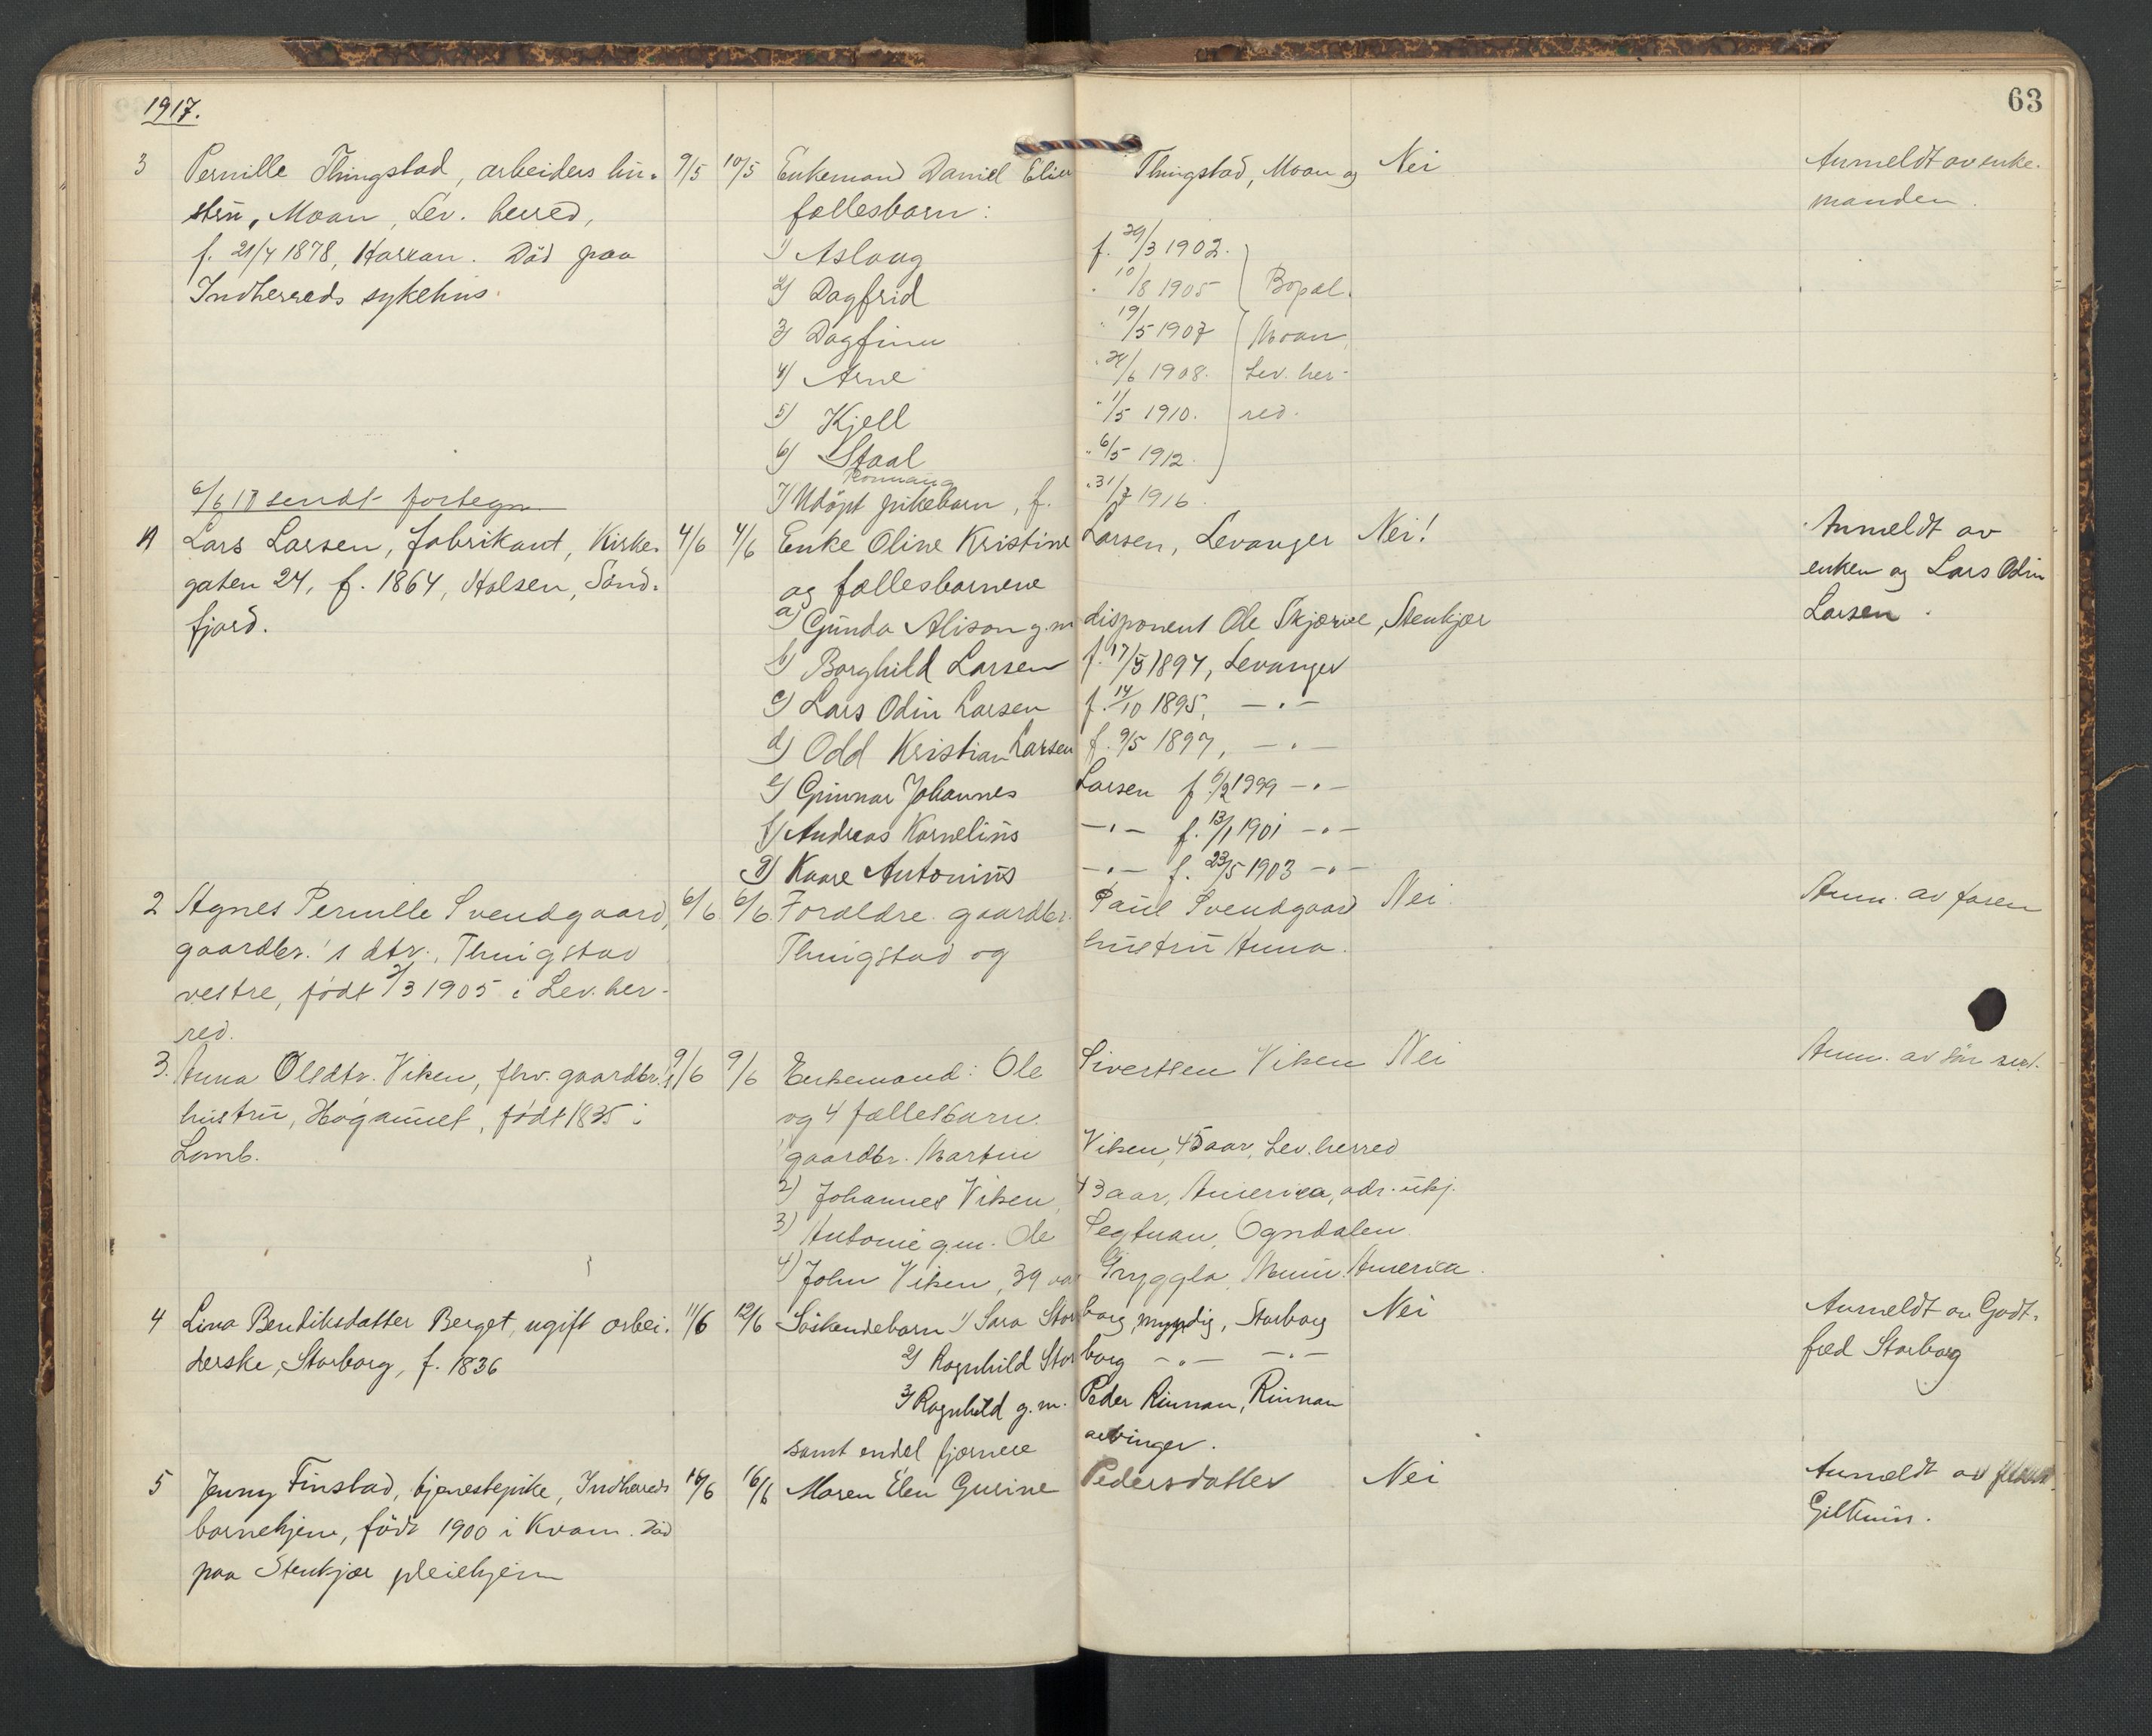 1917.
63
3 Pernille Thingstad, arbeiders hu- 9/5 10/5 Enkemand Daniel Elias Thingstad, Moan og Nei Anmeldt av enke-
strü, Moan, Lev. herred, fællesbarn: manden.
f. 21/4 1878, Karkan. Död paa 1) Aslaug f. 29/3 1902.
Indherreds sykehus. 2) Dagfrid " 10/8 1905 Bopæl.
3) Dagfinn " 19/5 1907 Moan,
4) Arne /6 1908. Lev. her-
5) Kjell " 1/5 1910. red.
6) Staal " 6/5 1912.
Ronnaug
6/6 17 sendt fortegn. 7) Udöpt pikebarn, f. " 31/7 1916.
1 Lars Larsen, fabrikant, Kirke- 4/6 4/6 Enke Oline Kristine Larsen, Levanger Nei! Anmeldt av
gaten 24, f. 1864, Holsen, Sönd- og fællesbarnene enken og Lars Odin
fjord. a) Gunda Alison g.m disponent Ole Skjærve, Stenkjær Larsen.
b) Borghild Larsen f. 17/5 1894, Levanger
c) Lars Odin Larsen f. 14/10 1895, -"-
d) Odd Kristian Larsen f. 9/5 1897, -"-
e) Gunnar Johannes Larsen f. 6/2 1899 -"-
f) Andreas Kornelius -"- f. 13/1 1901 -"-
g) Kaare Antonius -"- f. 23/5 1903 -"-
2 Agnes Pernille Svendgaard, 6/6 6/6 Forældre gaardbr. Paul Svendgaard Nei Anm. av faren
gaardbr.'s dtr., Thingstad Thingstad og hustrü Anna.
vestre, født /3 1905 i Lev. her-
red.
3. Anna Olsdtr. Viken, fhv. gaardbr.'s 9/6 9/6 Enkemand: Ole Sivertsen Viken Nei Anm. av
hustrü, Högaunet, født 1835 i og 4 fællesbarn.
Lomb. gaardbr. Martin Viken, 45 aar, Lev. herred
2) Johannes Viken, 43 aar, America, adr. ukj.
3) Antonie g.m. Ole Segtnan, Ogndalen
4) John Viken, 39 aar Gryggla, Minn. America.
4 Lina Bendiksdatter Berget, ugift arbei- 11/6 12/6 Söskendebarn 1) Sara Storborg, myndig, Storborg Nei Anmeldt av Godt-
derske, Storborg, f. 1836 2) Ragnhild Storborg -"- -"- fred Storborg
3) Ragnhild g.m. Peder Rinnan, Rinnan
samt endel fjernere arvinger.
5 Jenny Finstad, tjenestepike, Indherreds 15/6 16/6 Maren Elen Gurine Pedersdatter Nei Anmeldt av
barnehjem, födt 1900 i Kvam. Död Giltuin.
paa Stenkjær pleiehjem